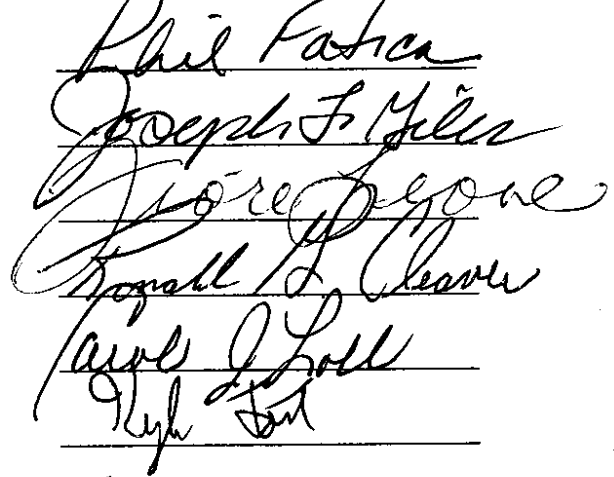 Phil Fatica
Joseph F. Giles
Fiore Leone
Ronald L. Cleaver
Carol J.
Kyle